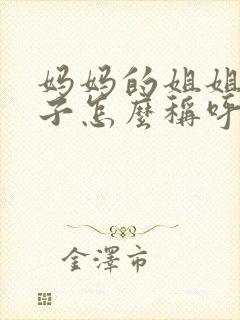 妈妈的姐姐
子怎麼稱呼
金澤市